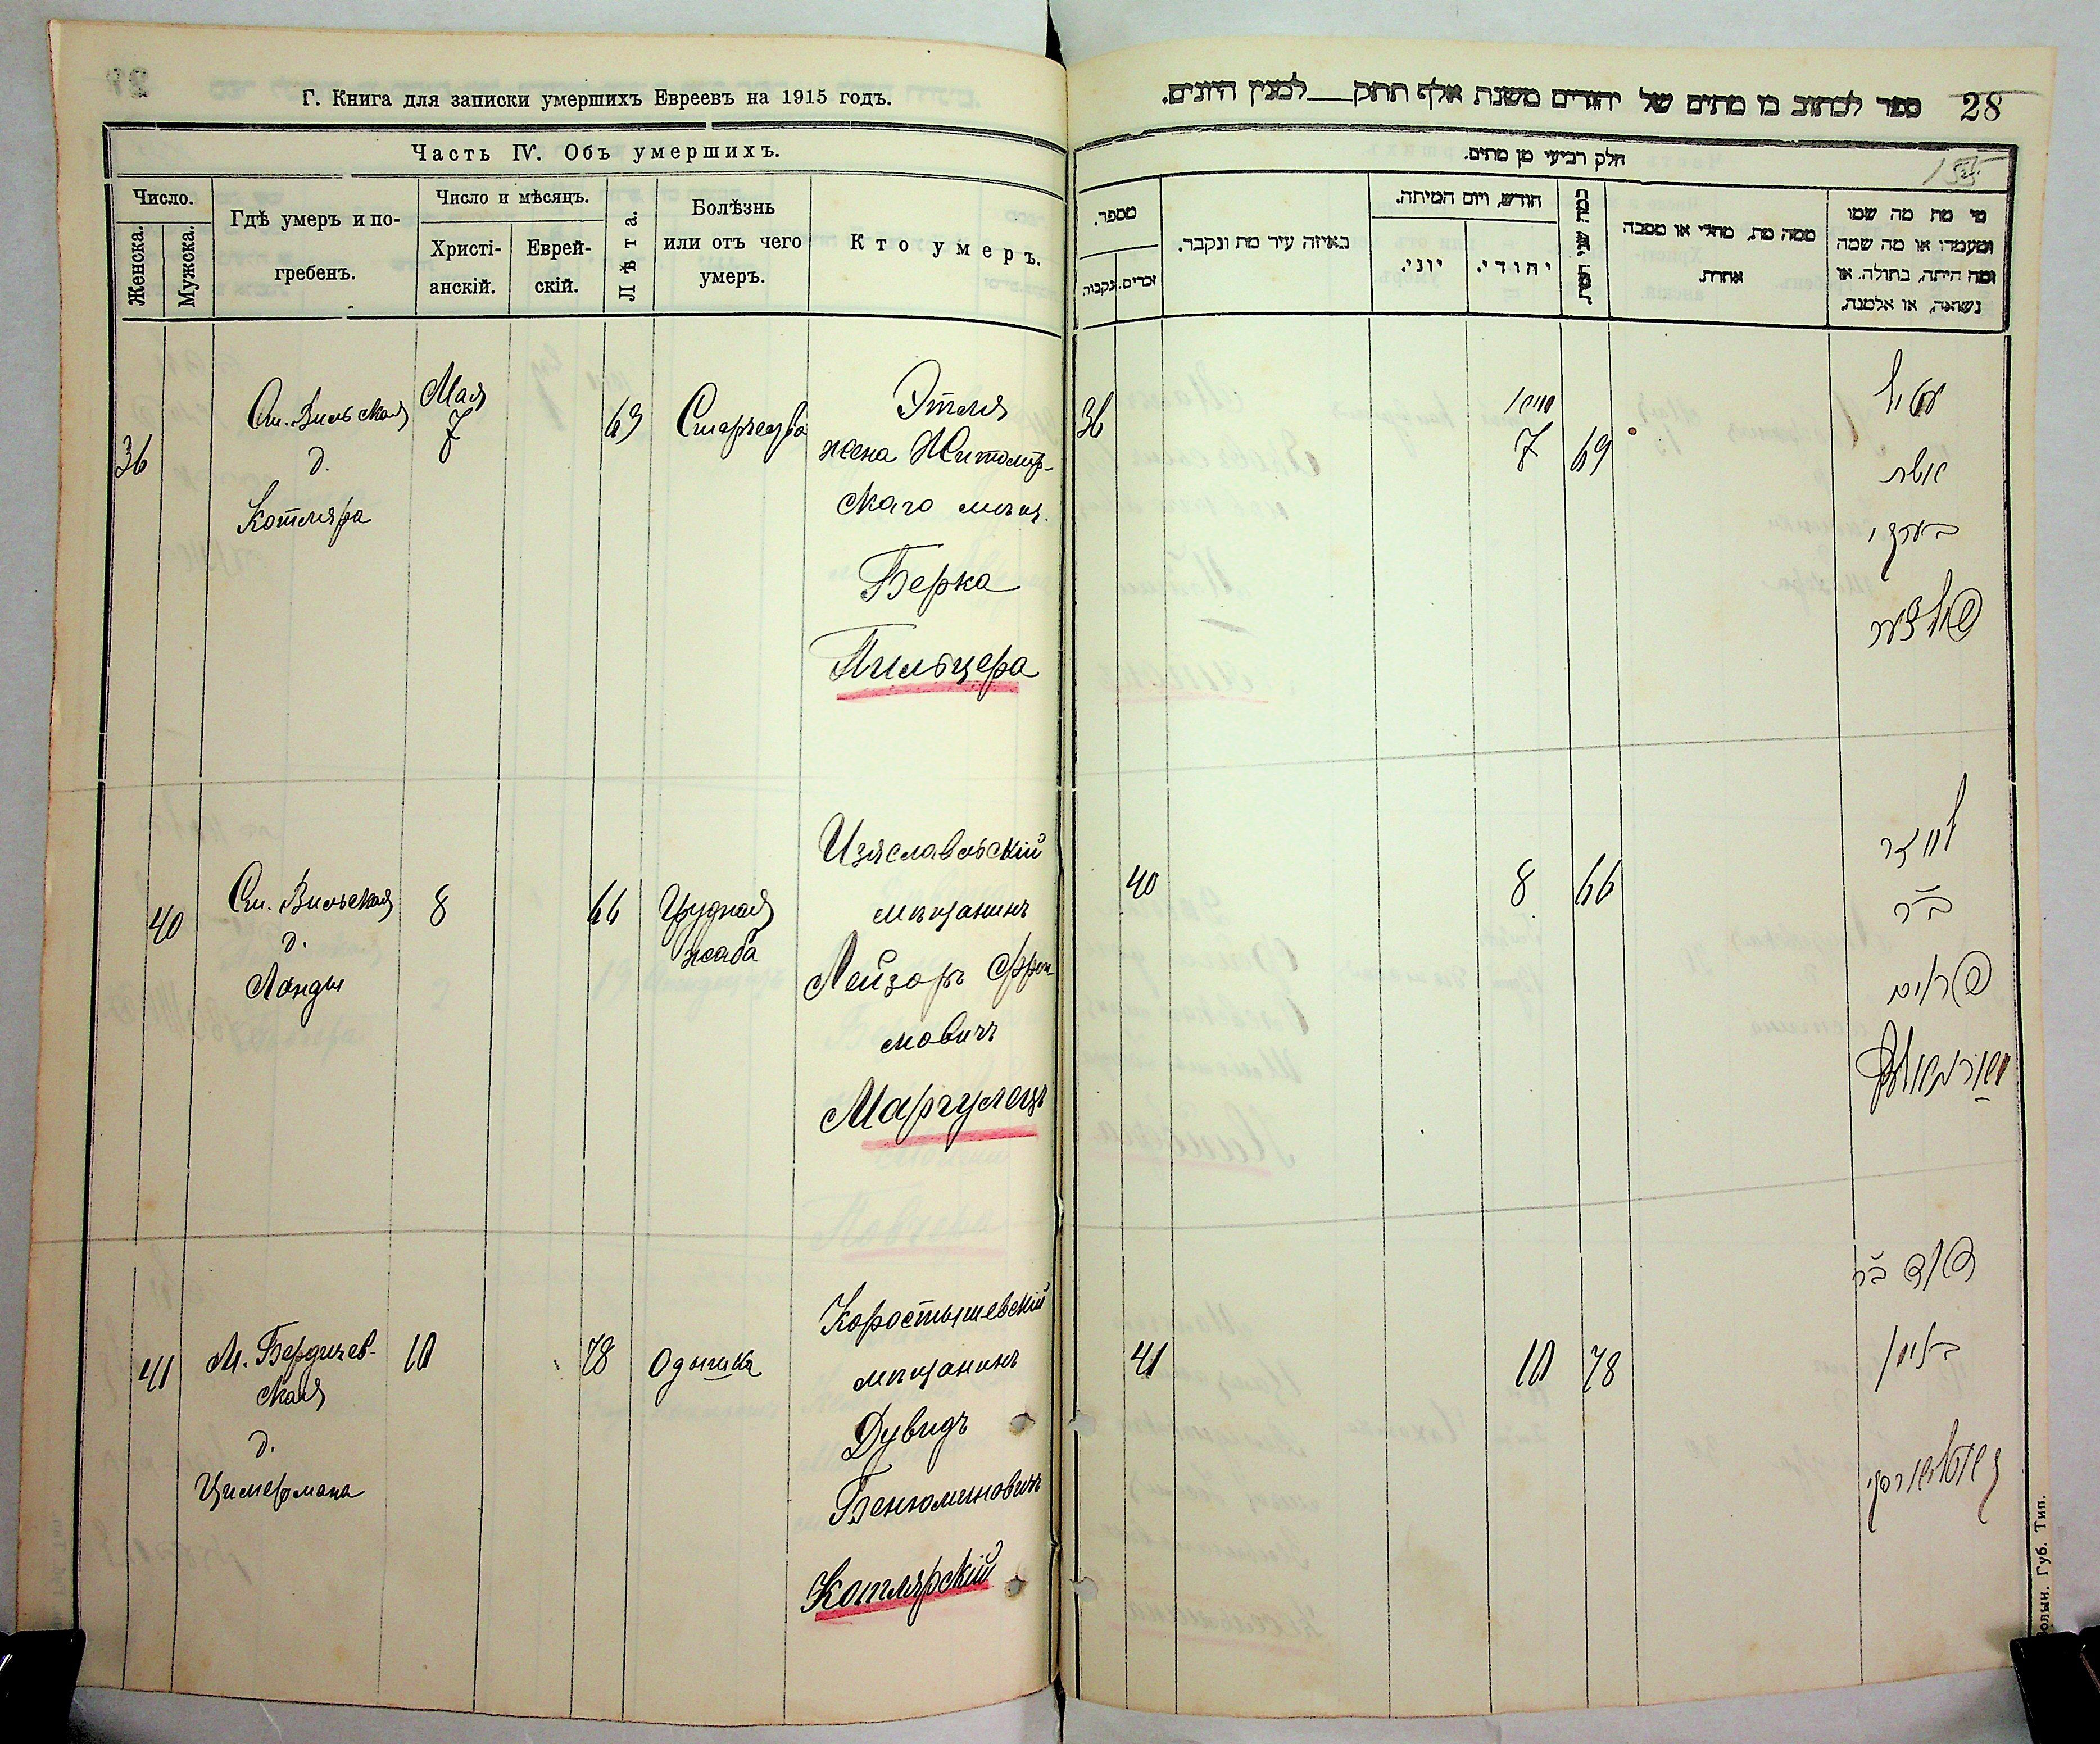 Г. Книга для записки умершихъ Евреевъ на 1915 годъ.
Часть IV. Объ умершихъ.
Число.
Женска.
Мужска.
Гдѣ умеръ и по-
гребенъ.
Число и мѣсяцъ.
Христі-
анскій.
Еврей-
скій.
Лѣта.
Болѣзнь
или отъ чего
умеръ.
Кто умеръ.
36
Ст. Вильская
д.
Котляра
Мая
7
69
Старчество
Этля
жена Житомір-
скаго мѣщ.
Берка
Пильцера
40
Ст. Вильская
д.
Ланды
8
66
Грудная
жаба
Изяславльскій
мѣщанинъ
Лейзоръ Фрои-
мовичъ
Маргулецъ
41
М. Бердичев-
ская
д.
Цимермана
10
78
Одышка
Коростышевскій
мѣщанинъ
Дувидъ
Бенюминовичъ
Котлярскій
ספר לכתוב בו מתים של יהודים משנת אלף תתק למנין היונים.
28
חלק רביעי מן מתים.
מספר.
נקבות.
זכרים.
באיזה עיר מת ונקבר.
חודש, ויום המיתה.
יוני.
יהודי.
ממה מת, מחלי או מסבה
אחרת.
מי מת מה שמו
ומעמדו או מה שמה
ומה היתה, בתולה, או
נשואה, או אלמנה.
36
7
69
עטיל
אשת
בערקי
פילצער
40
8
66
לוזר
ב״ר
פרוים
41
10
78
דוד ב״ר
בנימין
Волын. Губ. Тип.